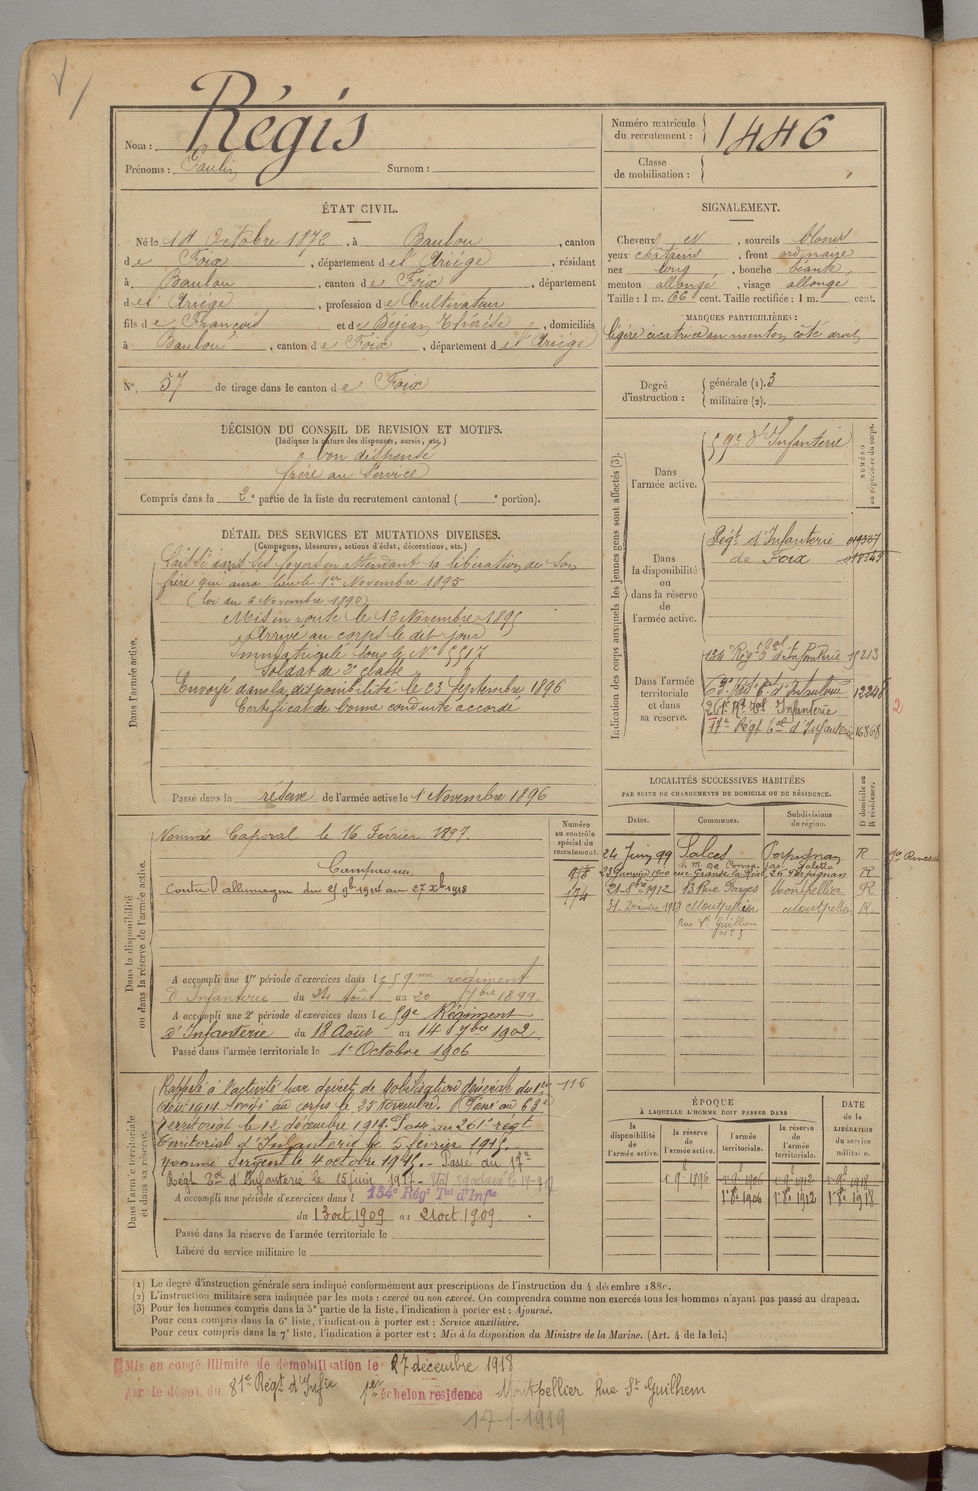 Nom : Régis
Prénoms : Paulin Surnom :
Numéro matricule du recrutement : 1446
Classe de mobilisation :
ÉTAT CIVIL.
Né le 14 Octobre 1872, à Baulou, canton
de Foix, département de l'Ariège, résidant
à Baulou, canton de Foix, département
de l'Ariège, profession de Cultivateur
fils de François et de Béjean Thérèse, domiciliés
à Baulou, canton de Foix, département de l'Ariège
N° 57 de tirage dans le canton de Foix
SIGNALEMENT.
Cheveux et, sourcils blonds
yeux châtains, front ordinaire
nez long, bouche béante,
menton allongé, visage allongé
Taille : 1 m. 66 cent. Taille rectifiée : 1 m. cent.
MARQUES PARTICULIÈRES :
légère cicatrice au menton, côté droit
Degré d'instruction : générale (1). 3
militaire (2).
DÉCISION DU CONSEIL DE REVISION ET MOTIFS.
(Indiquer la nature des dispenses, sursis, etc.)
bon dispensé
frère au Service
Compris dans la 2e partie de la liste du recrutement cantonal ( e portion).
DÉTAIL DES SERVICES ET MUTATIONS DIVERSES.
(Campagnes, blessures, actions d'éclat, décorations, etc.)
Dans l'armée active.
Laissé dans ses foyers en attendant la libération de son
frère qui aura lieu le 1er Novembre 1895
(loi du 6 Novembre 1890)
Mis en route le 12 Novembre 1895
Arrivé au corps le dit jour
Immatriculé sous le N° 5517
Soldat de 2e classe
Envoyé dans la disponibilité le 23 Septembre 1896
Certificat de bonne conduite accordé
Passé dans la réserve de l'armée active le 1 Novembre 1896
Dans la disponibilité ou dans la réserve de l'armée active.
Numéro au contrôle spécial du recrutement.
Nommé Caporal le 16 Février 1897.
Campagnes
Contre l'allemagne du 25 9bre 1914 au 27 Xbre 1918
174
A accompli une 1re période d'exercices dans le 59me régiment
d'Infanterie du 24 Août au 20 7bre 1899.
A accompli une 2e période d'exercices dans le 59e Régiment
d'Infanterie du 18 Août au 14 7bre 1902
Passé dans l'armée territoriale le 1er Octobre 1906
Dans l'armée territoriale et dans sa réserve.
Rappelé à l'activité par décret de Mobilisation Générale du 1er
Août 1914. Arrivé au corps le 25 Novembre. Passé au 63e
Territorial le 12 décembre 1914. Passé au 261e régt
territorial d'Infanterie le 5 février 1915.
Nommé Sergent le 4 octobre 1915. - Passé au 17e
Régt Tal d'Infanterie le 15 juin 1917.
116
A accompli une période d'exercices dans l 134e Régt Tal d'Infie
du 13 oct. 1909 au 21 oct. 1909.
Passé dans la réserve de l'armée territoriale le
Libéré du service militaire le
Indication des corps auxquels les jeunes gens sont affectés (3).
NUMÉRO au répertoire du corps.
Dans l'armée active.
59e d'Infanterie
Dans la disponibilité ou dans la réserve de l'armée active.
Régt d'Infanterie
de Foix
Dans l'armée territoriale et dans sa réserve.
134 Régt Tal d'Infanterie 15213
63e Régt Tal d'Infanterie 12248
261e Rt Tal Infanterie
17e Régt Tal d'Infanterie 16868
2
LOCALITÉS SUCCESSIVES HABITÉES
PAR SUITE DE CHANGEMENTS DE DOMICILE OU DE RÉSIDENCE.
Dates. Communes. Subdivisions de région. D domicile ou R résidence.
24 Juin 99 Salces Perpignan R
23 Janvier 1900 rue Grande la Réal, 26 Perpignan R
21 8bre 1912 13 Rue Montpellier R
31 Décembre 1913 Montpellier Montpellier R
Rue St Guilhem
n° 25
ÉPOQUE
À LAQUELLE L'HOMME DOIT PASSER DANS
la disponibilité de l'armée active. la réserve de l'armée active. l'armée territoriale. la réserve de l'armée territoriale.
DATE de la LIBÉRATION du service militaire.
1er 9bre 1896
1er 8bre 1906 1er 8bre 1912 1er 8bre 1918
(1) Le degré d'instruction générale sera indiqué conformément aux prescriptions de l'instruction du 4 décembre 1889.
(2) L'instruction militaire sera indiquée par les mots : exercé ou non exercé. On comprendra comme non exercés tous les hommes n'ayant pas passé au drapeau.
(3) Pour les hommes compris dans la 5e partie de la liste, l'indication à porter est : Ajourné.
Pour ceux compris dans la 6e liste, l'indication à porter est : Service auxiliaire.
Pour ceux compris dans la 7e liste, l'indication à porter est : Mis à la disposition du Ministre de la Marine. (Art. 4 de la loi.)
Mis en congé illimité de démobilisation le 27 décembre 1918
par le dépôt du 81e Régt d'Infie 1er échelon résidence Montpellier Rue St Guilhem
17-1-1919